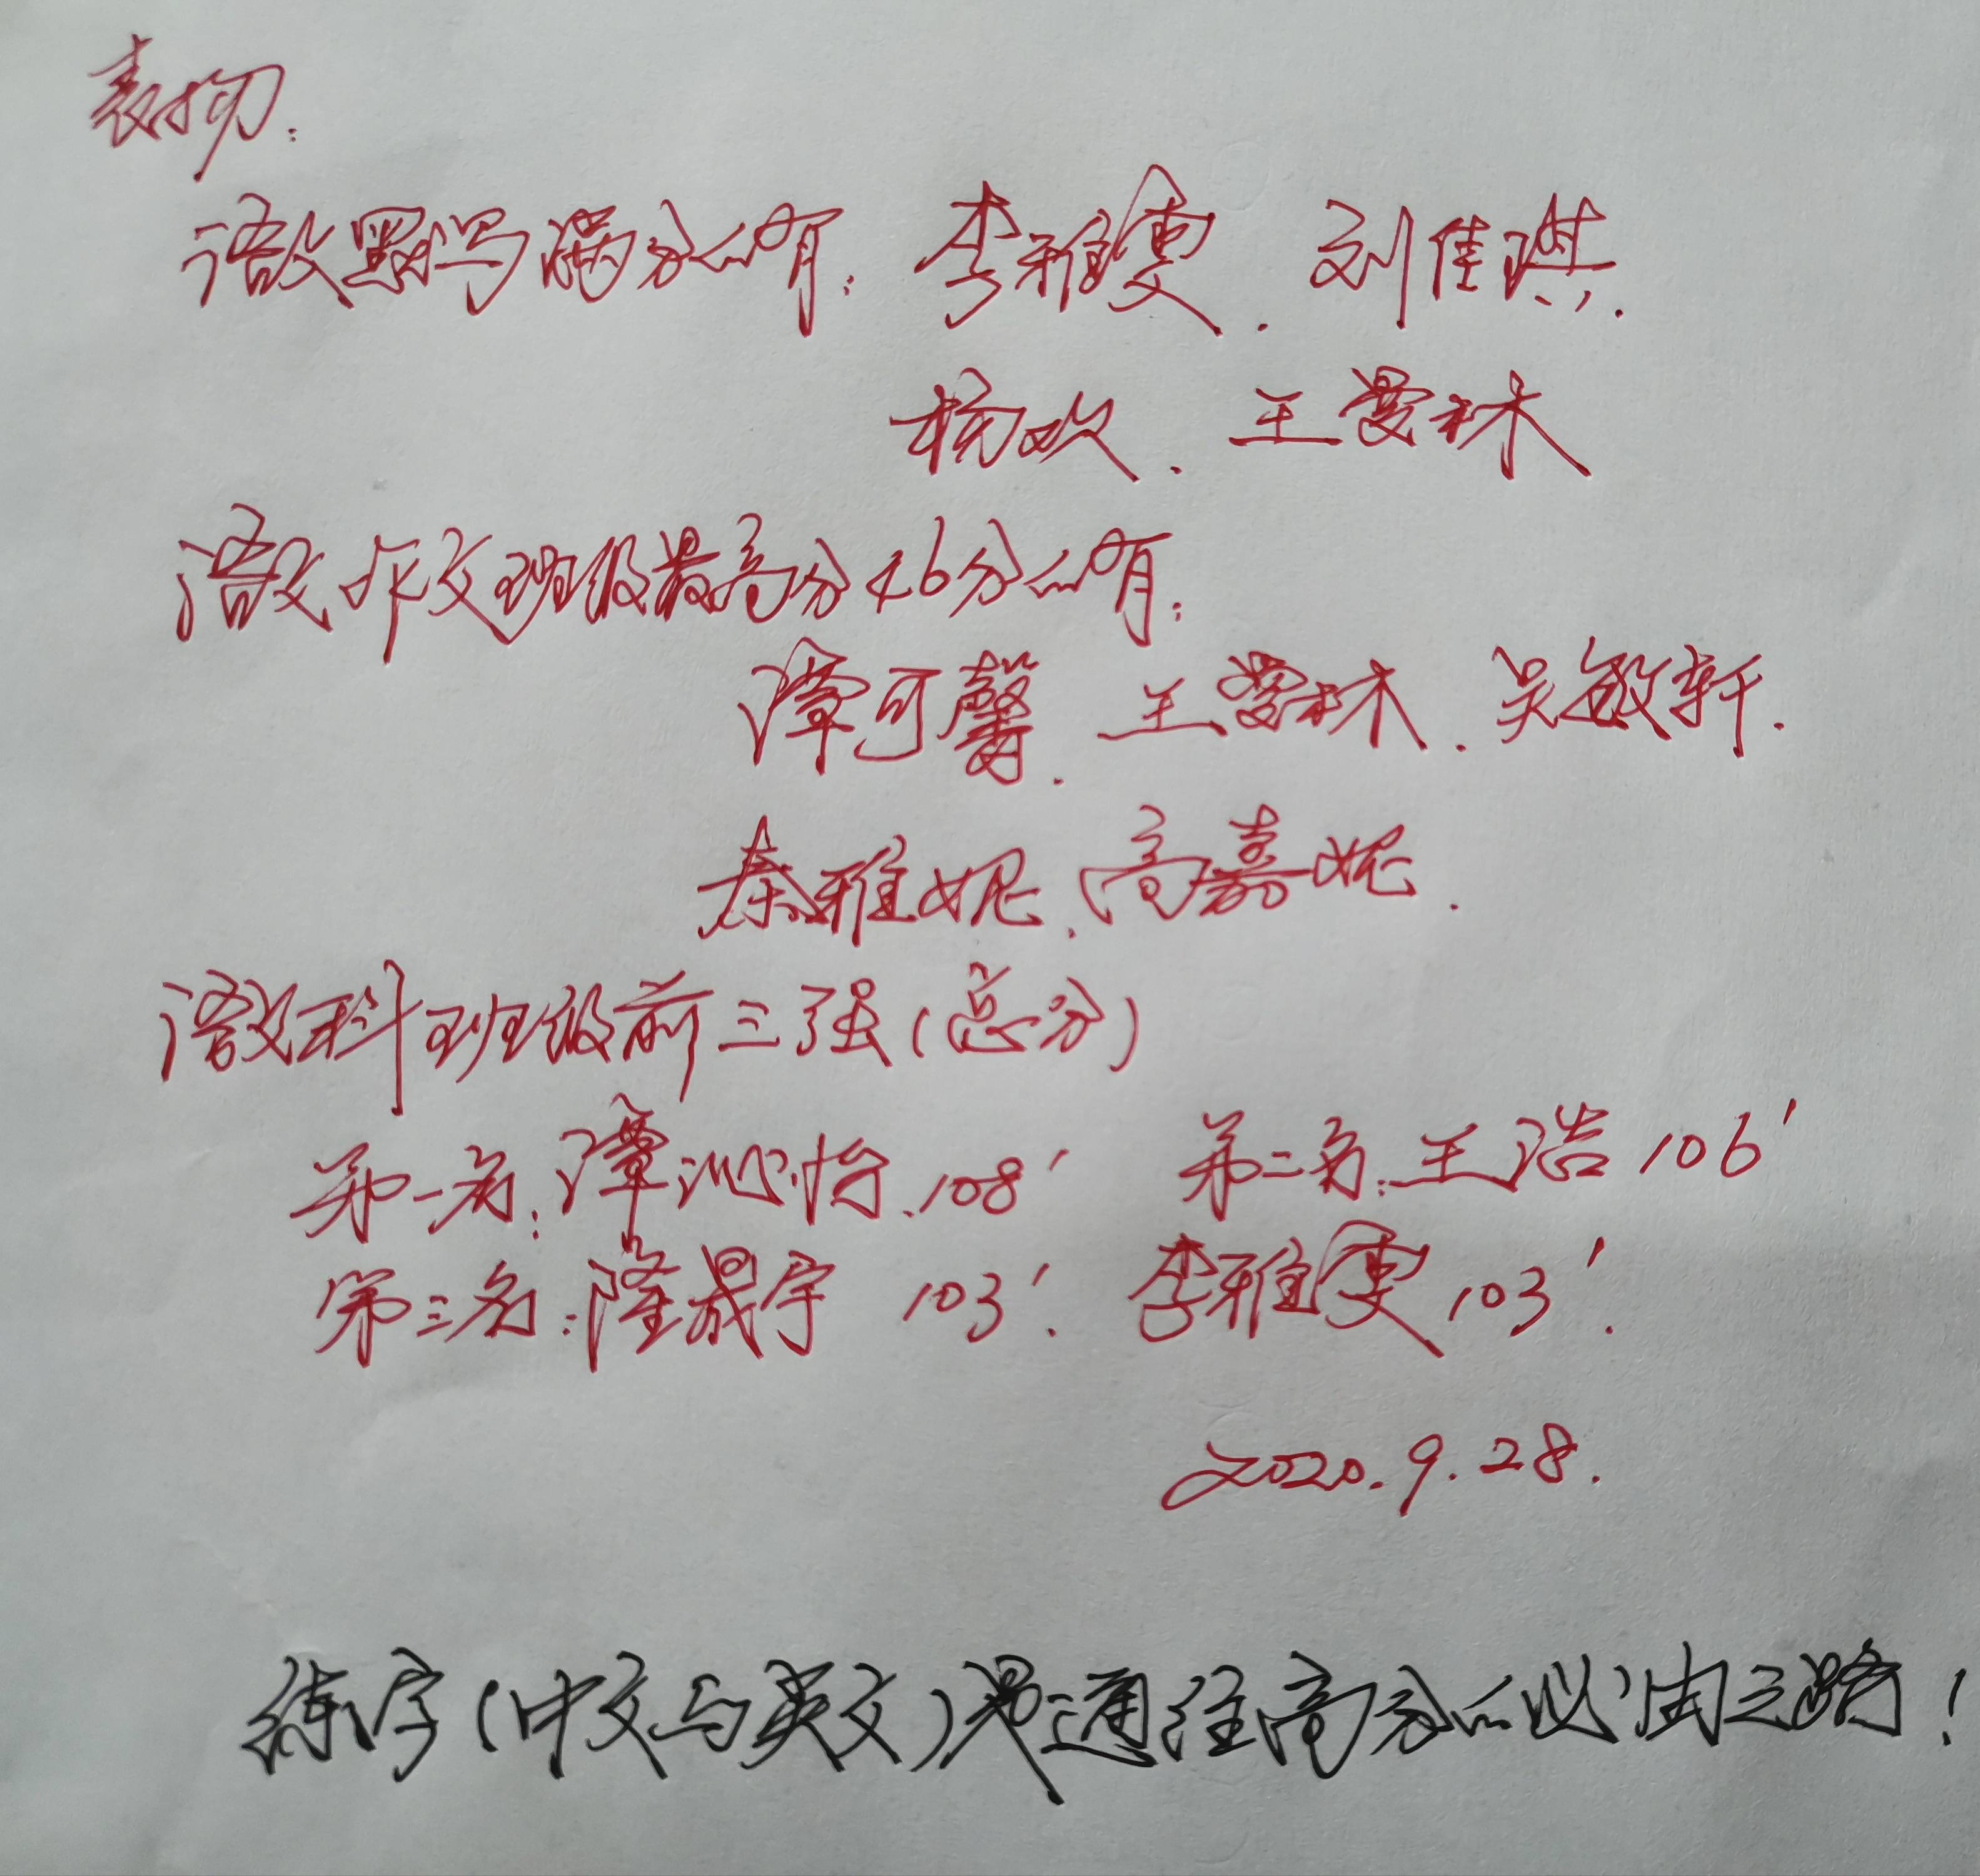 表扬:
语文默写满分的有: 李雅雯. 刘佳琪.
杨欢. 王雯林
语文作文班级最高分46分的有:
谭可馨. 王雯林. 吴敏轩.
秦雅妮. 高嘉妮.
语文科班级前三强(总分)
第一名: 谭沁怡. 108' 第二名: 王浩 106'
第三名: 隆晟宇 103'. 李雅雯 103'.
2020. 9. 28.
练字(中文与英文)是通往高分的必由之路!